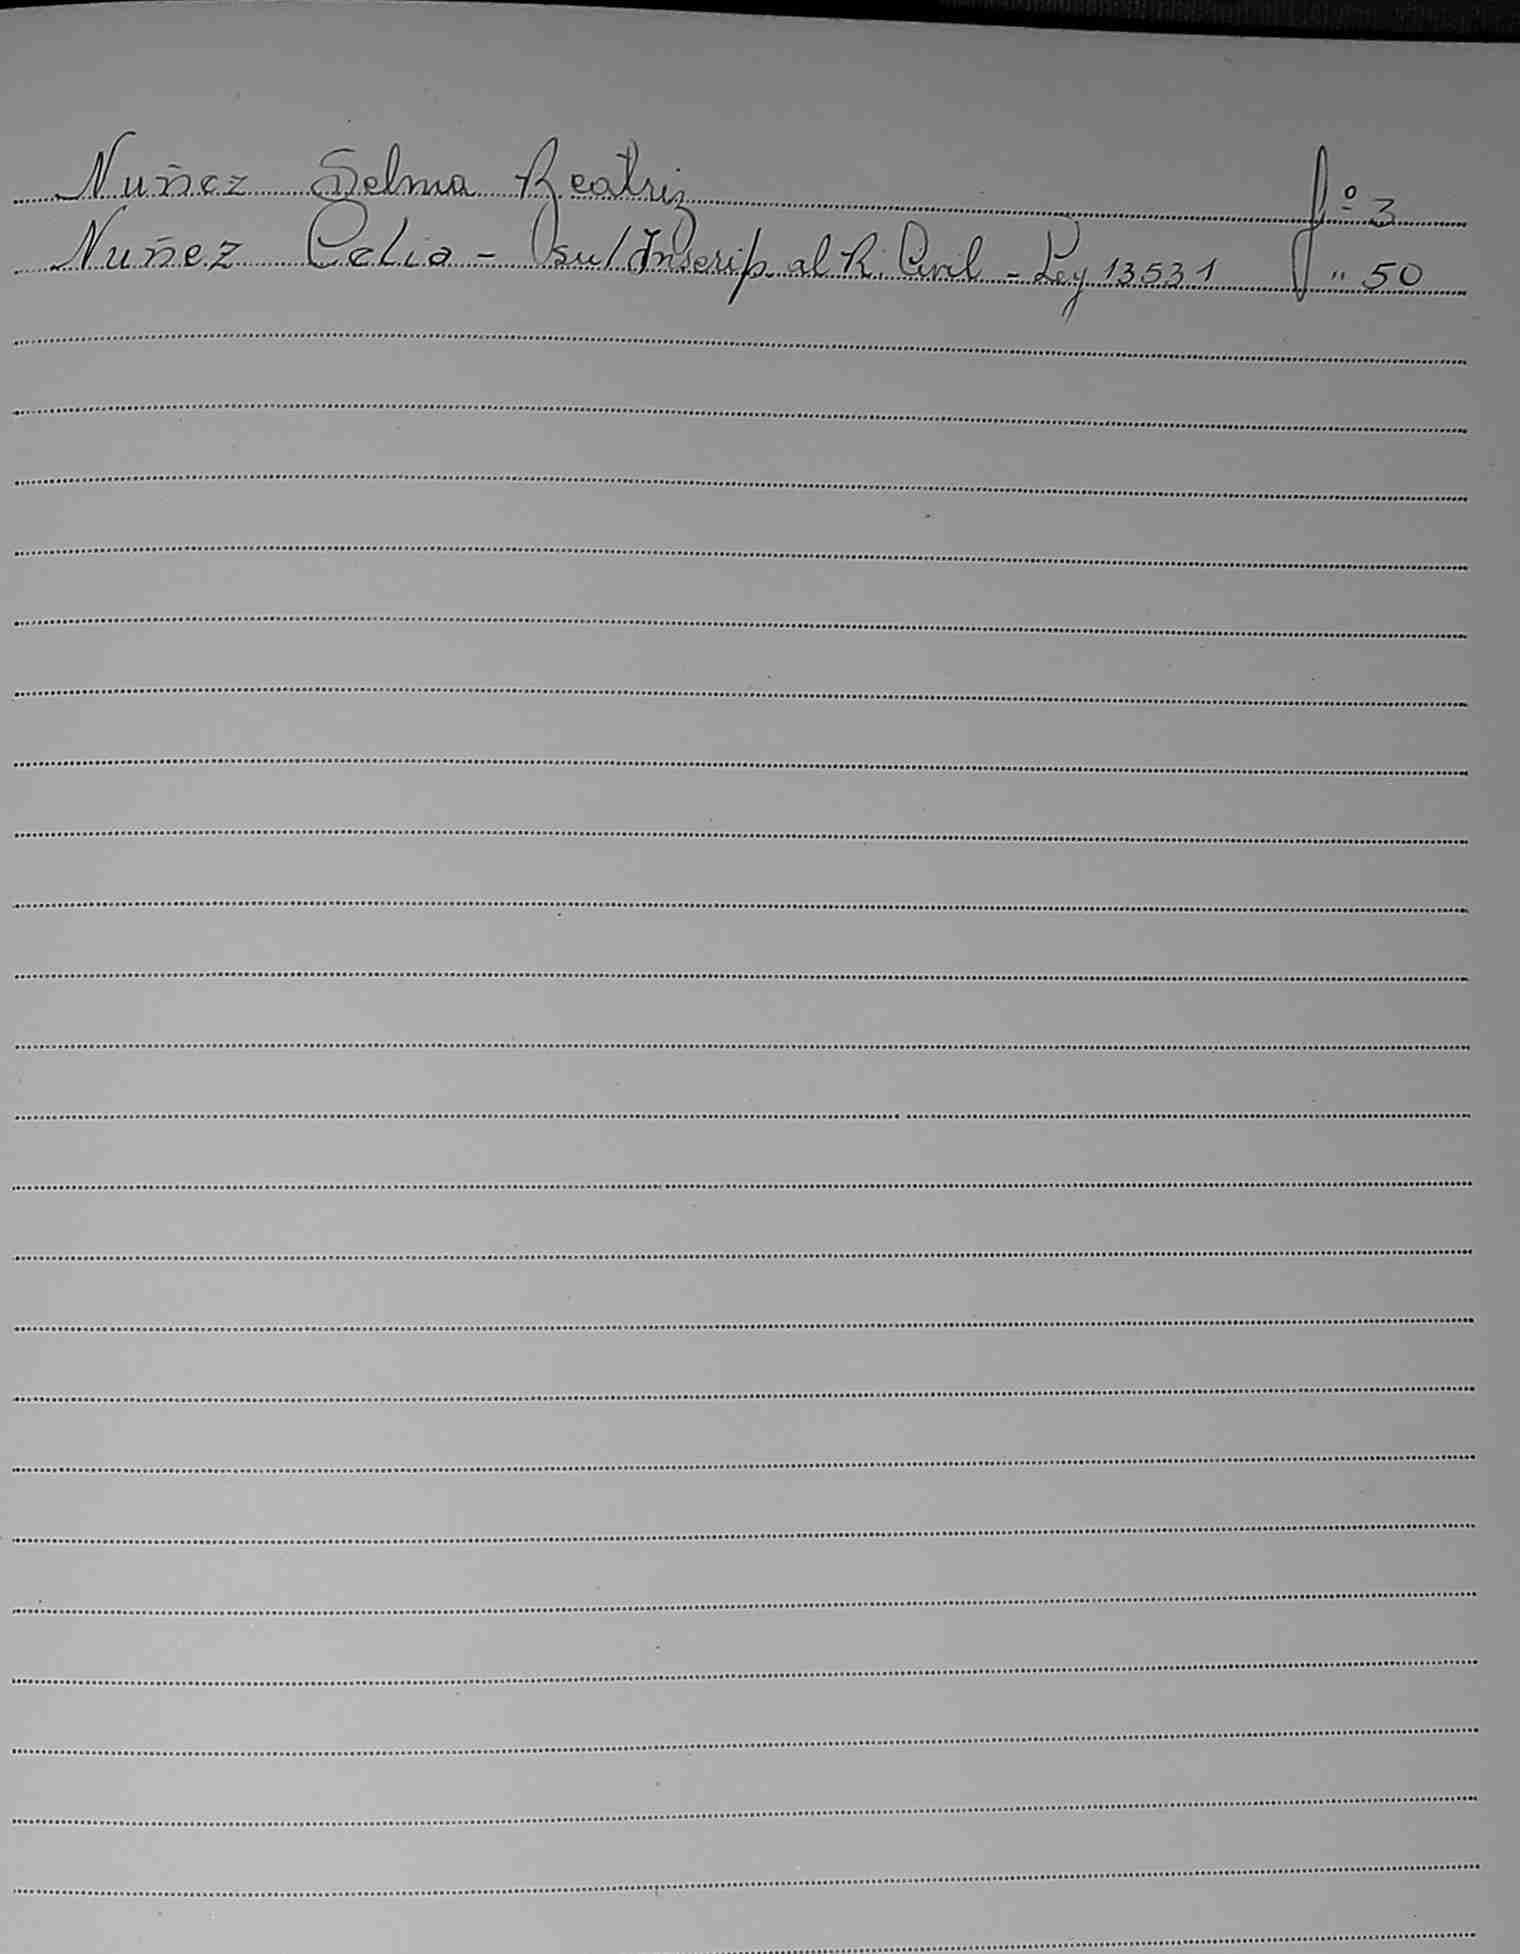 Nuñez Selma Beatriz fº 3
Nuñez Celia - su/Inscrip al R. Civil - Ley 13531 f " 50